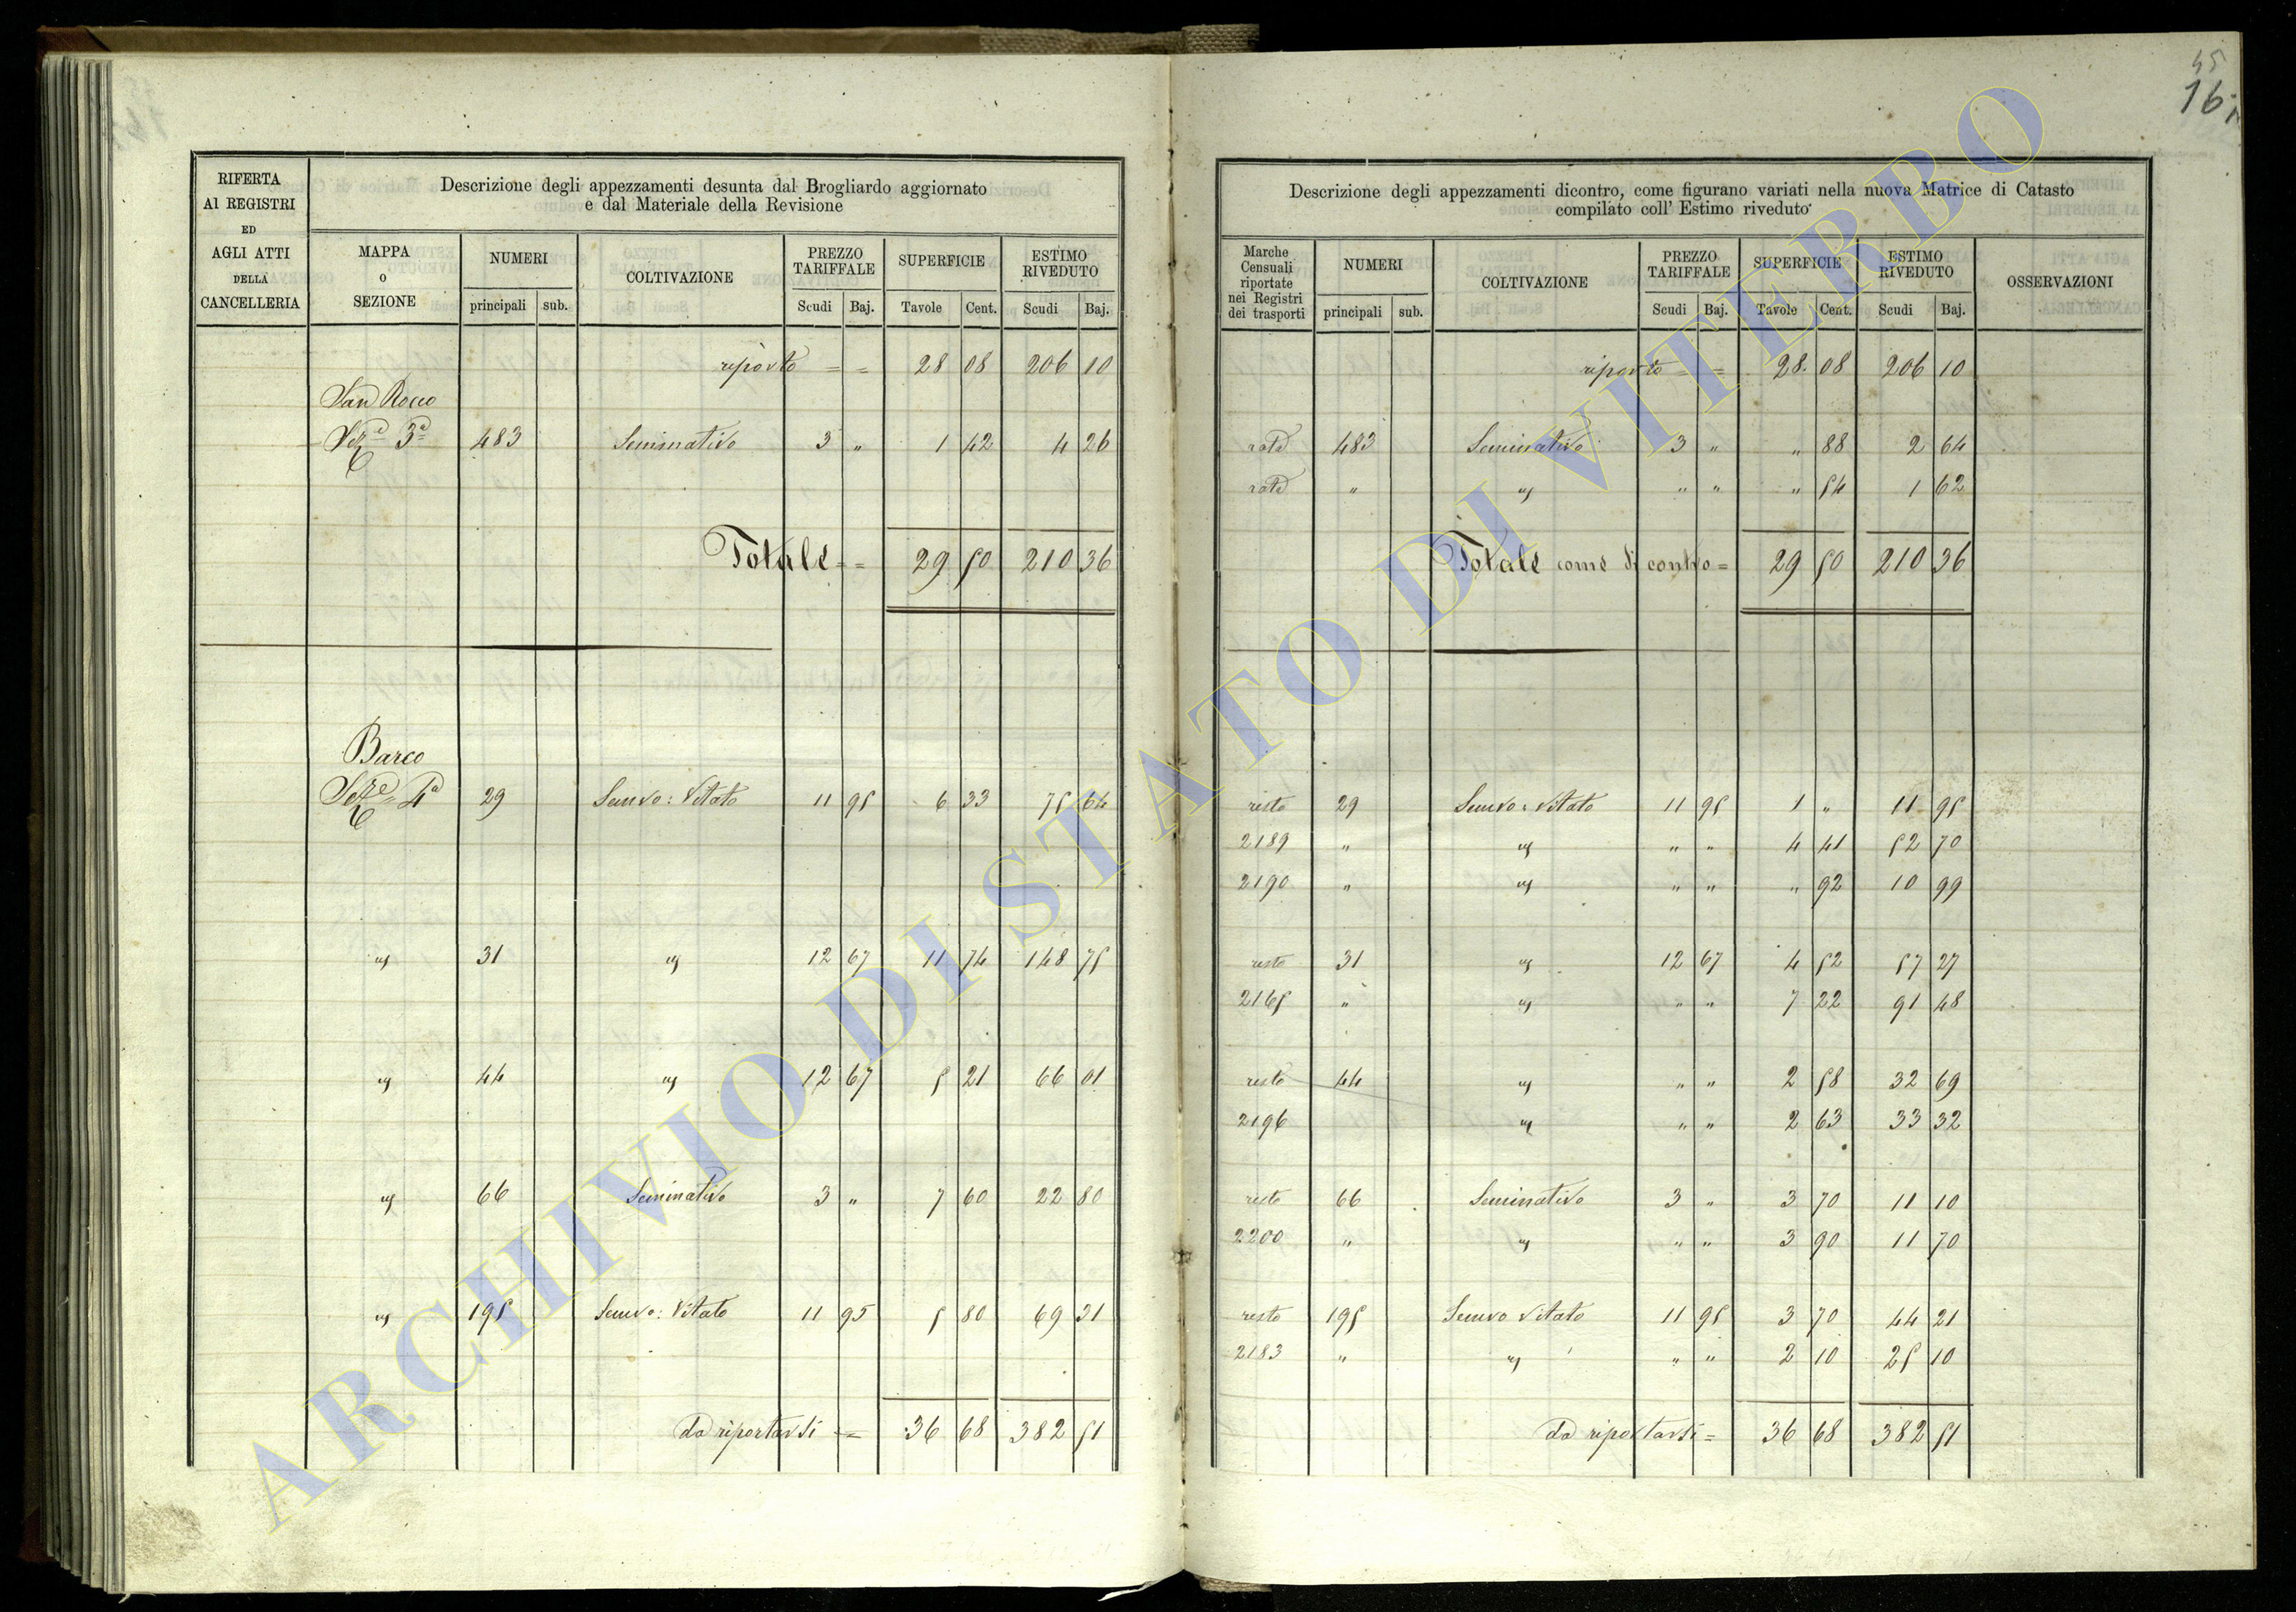 45
16
RIFERTA
AI REGISTRI
ED
AGLI ATTI
DELLA
CANCELLERIA
Descrizione degli appezzamenti desunta dal Brogliardo aggiornato
e dal Materiale della Revisione
MAPPA
o
SEZIONE
NUMERI
principali sub.
COLTIVAZIONE
PREZZO
TARIFFALE
Scudi Baj.
SUPERFICIE
Tavole Cent.
ESTIMO
RIVEDUTO
Scudi Baj.
riporto = = 28 08 206 10
San Rocco
Seze 3a 483 Seminativo 3 " 1 42 4 26
Totale = = 29 50 210 36
Barco
Seze 4a 29 Semvo: Vitato 11 95 6 33 75 64
id 31 id 12 67 11 74 148 75
id 44 id 12 67 5 21 66 01
id 66 Seminativo 3 " 7 60 22 80
id 195 Semvo: Vitato 11 95 5 80 69 31
da riportarsi = 36 68 382 51
Descrizione degli appezzamenti dicontro, come figurano variati nella nuova Matrice di Catasto
compilato coll' Estimo riveduto
Marche
Censuali
riportate
nei Registri
dei trasporti
NUMERI
principali sub.
COLTIVAZIONE
PREZZO
TARIFFALE
Scudi Baj.
SUPERFICIE
Tavole Cent.
ESTIMO
RIVEDUTO
Scudi Baj.
OSSERVAZIONI
riporto = = 28 08 206 10
rata 483 Seminativo 3 " " 88 2 64
rata " id " " " 54 1 62
Totale come di contro = 29 50 210 36
resto 29 Semvo: Vitato 11 95 1 " 11 95
2189 " id " " 4 41 52 70
2190 " id " " " 92 10 99
resto 31 id 12 67 4 52 57 27
2165 " id " " 7 22 91 48
resto 44 id " " 2 58 32 69
2196 id " " 2 63 33 32
resto 66 Seminativo 3 " 3 70 11 10
2200 " id " " 3 90 11 70
resto 195 Semvo Vitato 11 95 3 70 44 21
2183 " id " " 2 10 25 10
da riportarsi = 36 68 382 51
ARCHIVIO DI STATO DI VITERBO